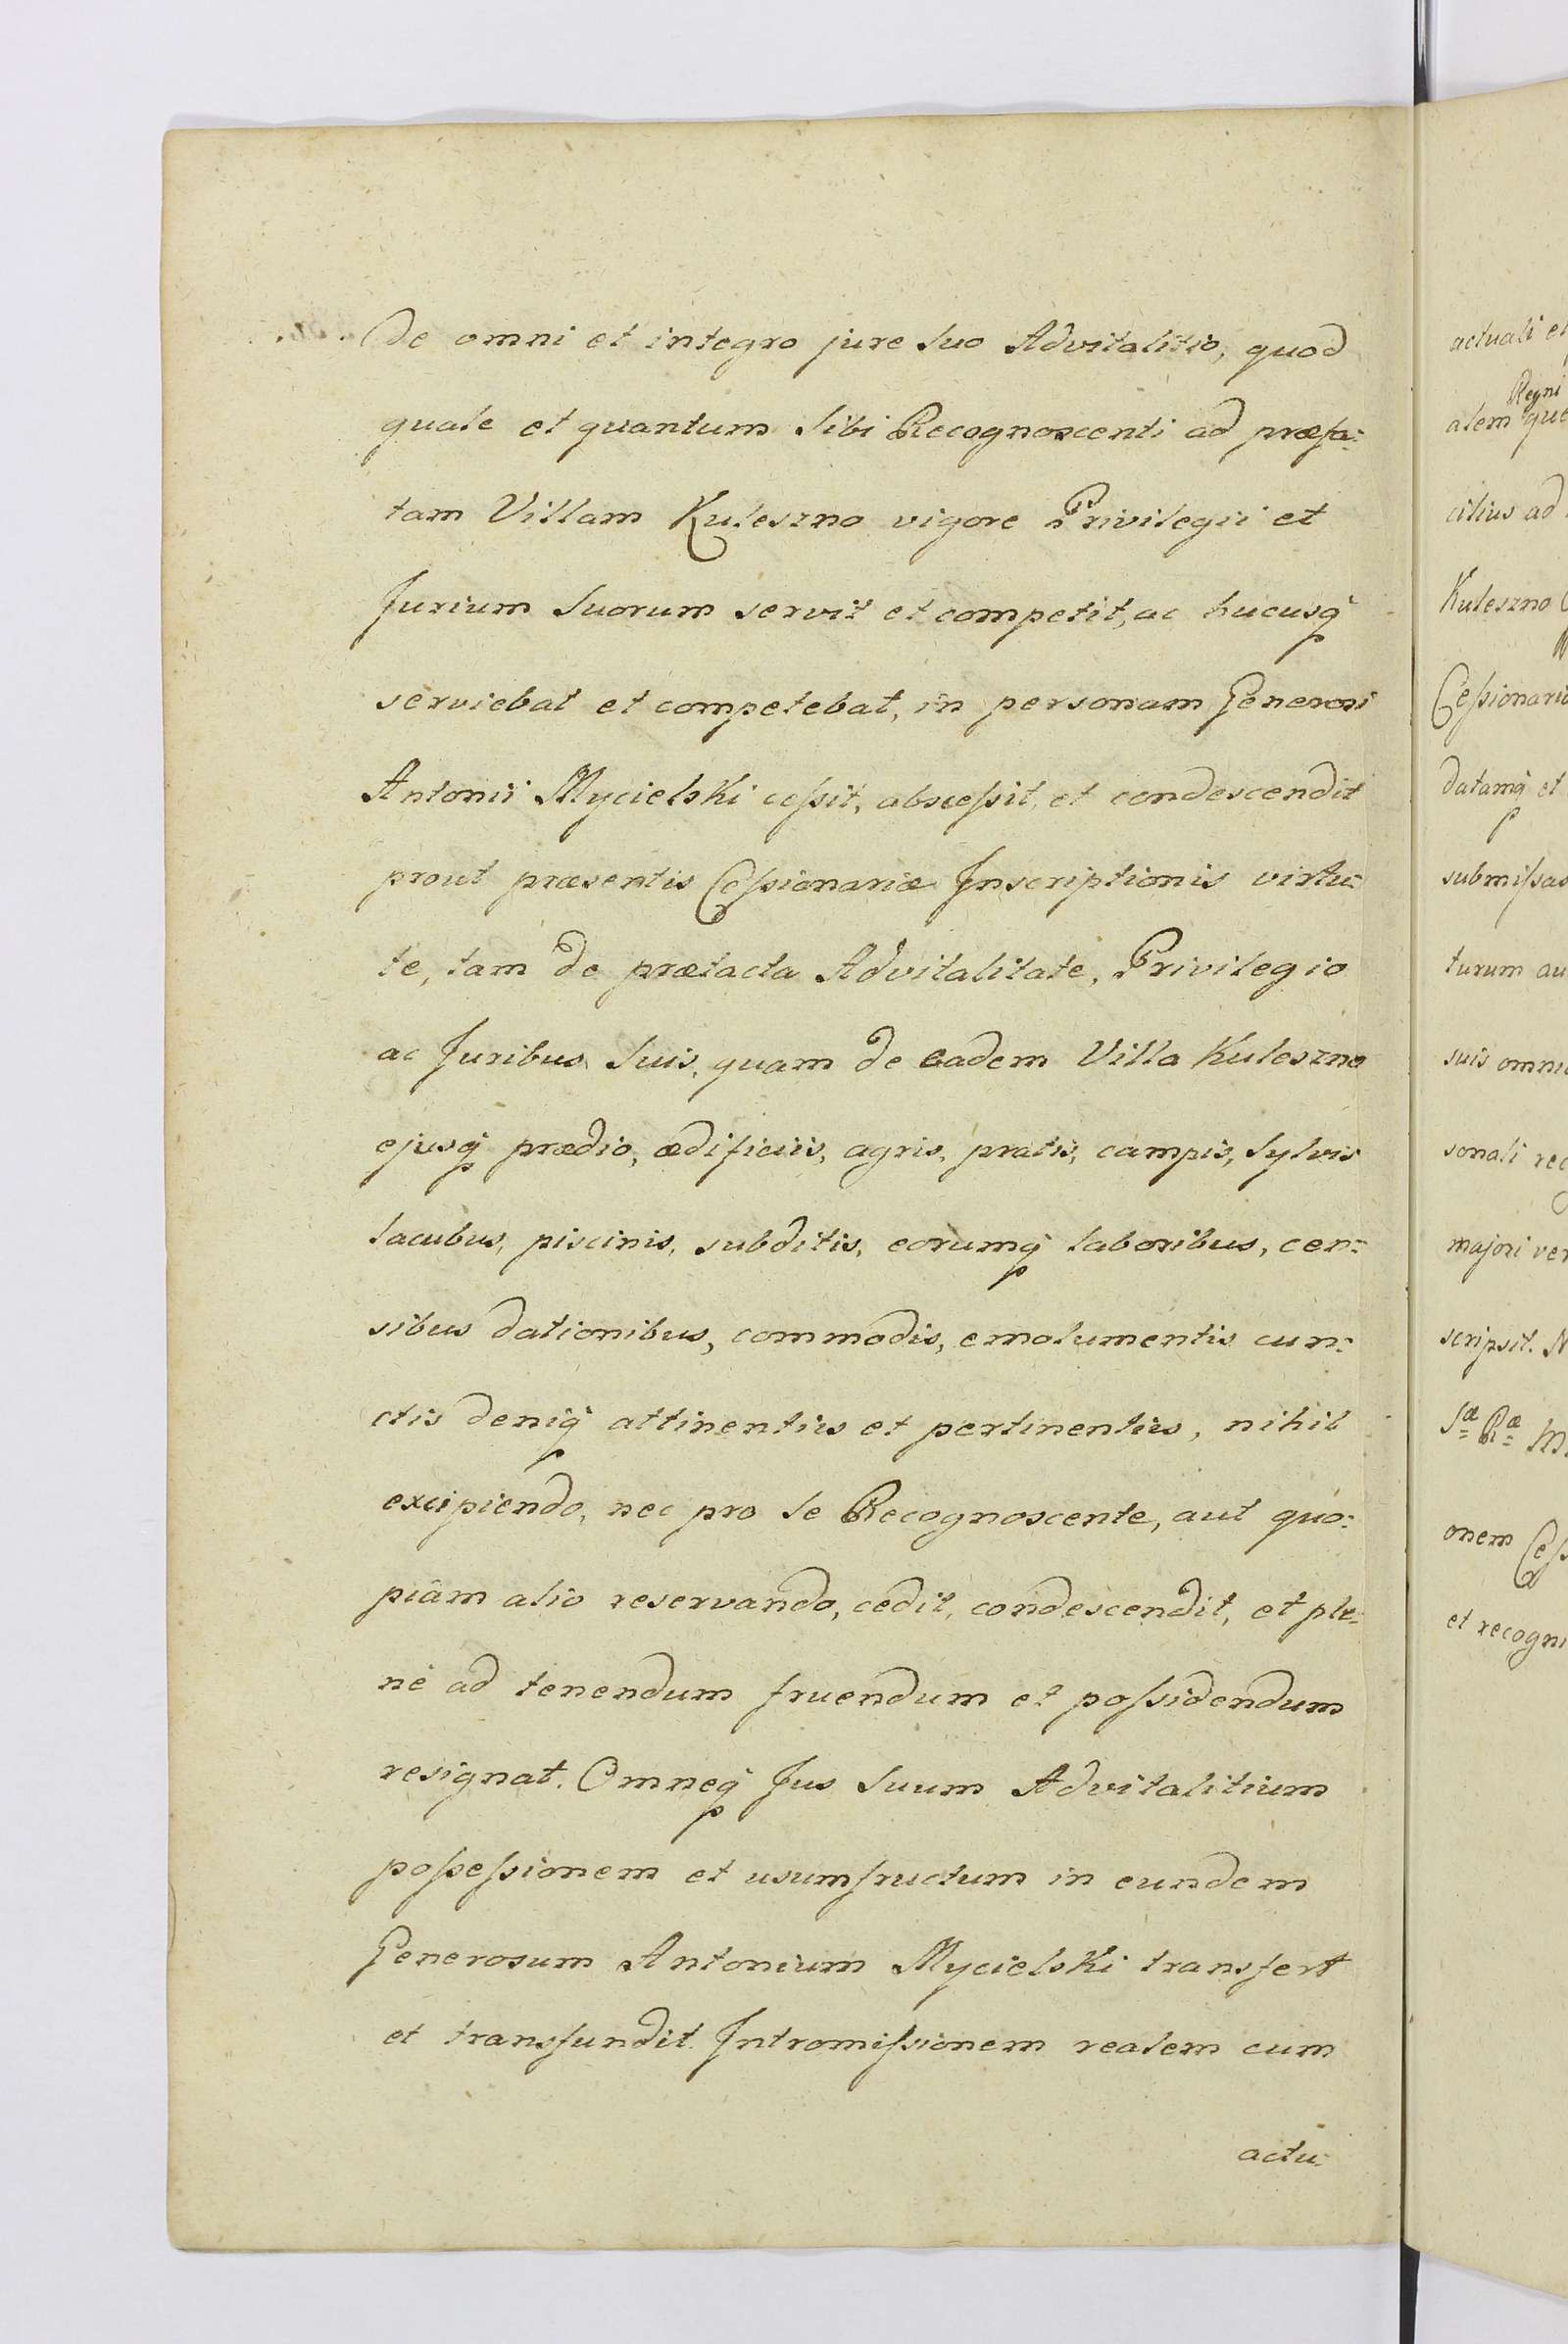 De omni et integro jure suo Advitalitio, quod
quale et quantum sibi Recognoscenti ad præfa:
tam Villam Kuleszno vigore Privilegii et
Jurium suorum servit et competit, ac hucusq
serviebat et competebat, in personam Generosi
Antonii Mycielski ceſsit, absceſsit, et condescendit
prout præsentis Ceſsionariæ Inscriptionis virtu:
te, tam de prætacta Advitalitate, Privilegio
ac Juribus suis, quam de eadem Villa Kuleszno
ejusq prædio, ædificiis, agris, pratis, campis, sylvis
lacubus, piscinis, subditis, eorumq laboribus, cen:
sibus dationibus, commodis, emolumentis cun:
ctis deniq attinentiis et pertinentiis, nihil
excipiendo, nec pro se Recognoscente, aut quo:
piam alio reservando, cedit, condescendit, et ple:
nè ad tenendum fruendum et poſsidendum
resignat. Omneq Jus suum Advitalitium
poſseſsionem et usumfructum in eundem
Generosum Antonium Mycielski transfert
et transfundit. Intromiſsionem realem cum
actu:
actuali et
Regni
alem que
cilius ad
Kuleszno
Ceſsionari
datamq et
submiſsas
turum au
suis omni
sonali rec
majori ver
scripsit. N
Sæ Ræ M
onem Ceſs
et recogni